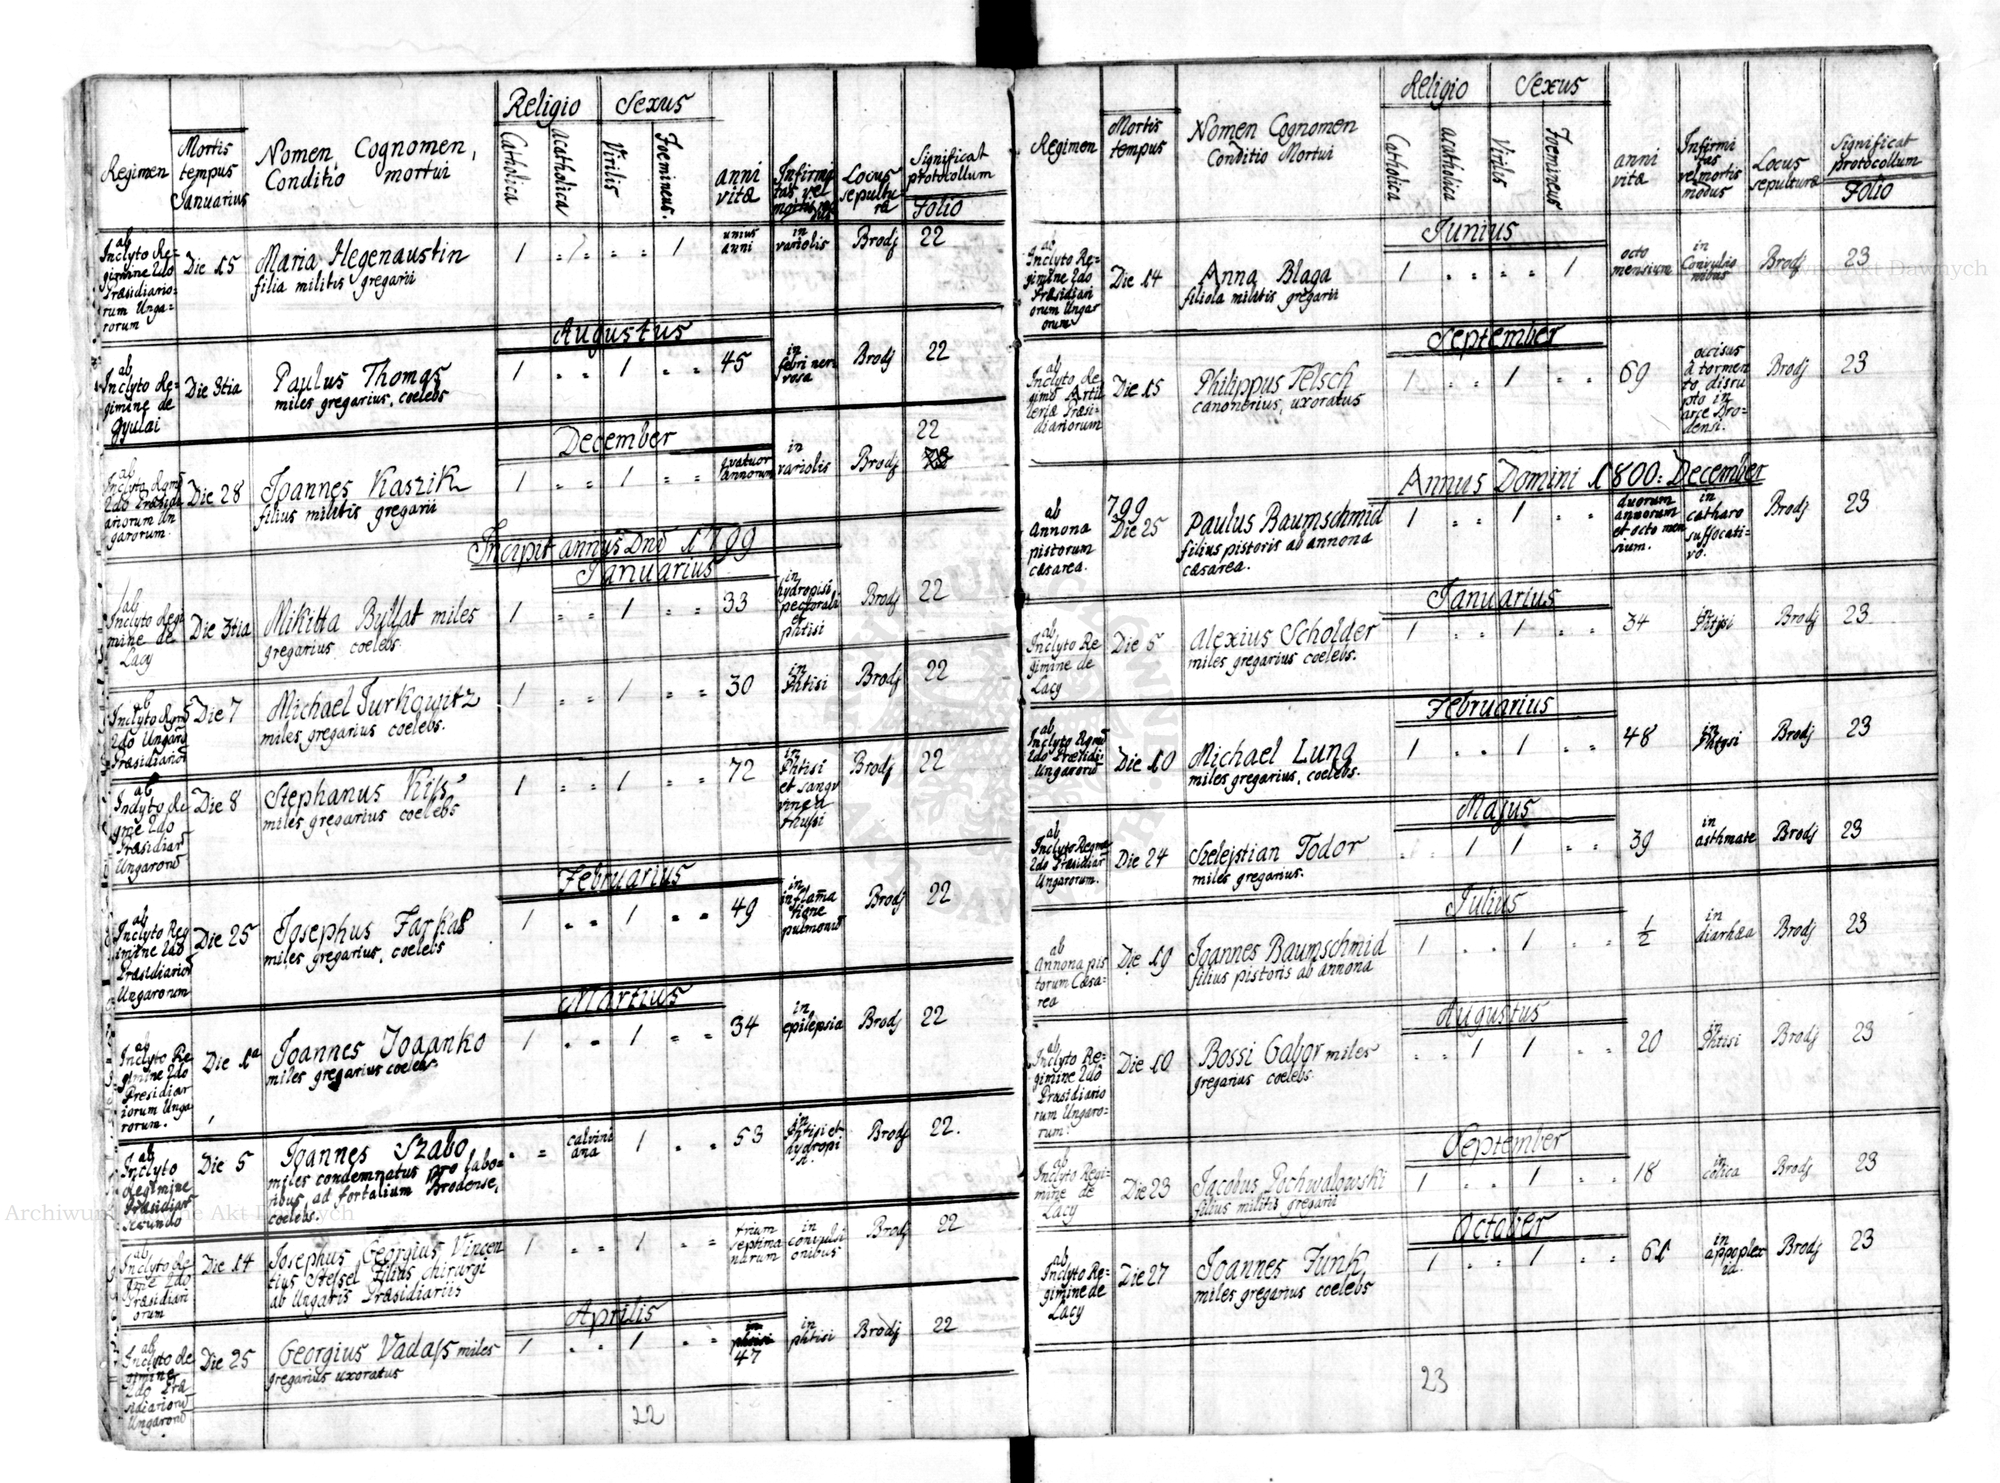 Religio Sexus
Regimen
Mortis tempus Januarius
Nomen, Cognomen,
Conditio mortui
Catholica
acatholica
Virilis
Foemineus.
anni vitæ
Infirmi
tas vel
mortis
Locus
sepultu
ræ
Significat
protocollum
Folio
ab Inclyto Re=
gimine 2do
Præsidiario=
rum Unga=
rorum
Die 15
Maria Hegenaustin
filia militis gregarii
1 1
unius
anni
in
variolis
Brodj
22
Augustus
ab
Inclyto Re=
gimine de
Gyulai
Die 3tia
Paulus Thomas
miles gregarius, coelebs
1 1
45
in
febri ner
vosa
Brodj
22
December
ab
Inclyto Rgmī
2do Præsidi
ariorum Un
garorum.
Die 28
Joannes Kaszik
filius militis gregarii
1 1
qvatuor
annorum
in
variolis
Brodj
22
Incipit annus Dni 1799
Januarius
ab
Inclyto Regi
mine de
Lacy
Die 3tia
Mikitta Bullat miles
gregarius coelebs.
1 1
33
in
hydropisi
pectorali
et
phtisi
Brodj
22
ab
Inclyto
2do Ungaro
Præsidiario
Die 7
Michael Turkowitz
miles gregarius coelebs.
1 1
30
in
Phtisi
Brodj
22
ab
Inclyto Re
gine 2do
Præsidiar
Ungaroru
Die 8
Stephanus Kiss
miles gregarius coelebs
1 1
72
in
Phtisi
et sangv
vinea
Brodj
22
Februarius
ab
Inclyto Reg
imine 2do
Præsidiarior
Ungarorum
Die 25
Josephus Farkas
miles gregarius, coelebs
1 1
49
in
inflama
tione
pulmonū
Brodj
22
Martius
ab
Inclyto Re
gimine 2do
Præsidiar
iorum Unga
rorum.
Die 1a
Joannes Joaanko
miles gregarius coelebs
1 1
34
in
epilepsia
Brodj
22
ab
Inclyto
Regimine
Præsidiar
secundo
Die 5
Joannes Szabo
miles condemnatus pro labo=
ribus ad fortalium Brodense,
coelebs.
calvini
ana
1
53
in
phtisi et
hydropi
si
Brodj
22.
ab
Inclyto Re
gine 2do
Præsidiari
orum
Die 14
Josephus Georgius Vincen
tius Stelsel filius chirurgi
ab Ungaris Præsidiariis
1 1
trium
septima
narum
in
convulsi
onibus
Brodj
22
Aprilis
ab
Inclyto Re
gimine
2do Præ
sidiarioru
Ungaroru
Die 25
Georgius Vadass miles
gregarius uxoratus
1 1
47
in
phtisi
Brodj
22
22
Religio Sexus
Regimen
Mortis
tempus
Nomen Cognomen
Conditio Mortui
Catholica
acatholica
Virilis
Foemineus
anni
vitæ
Infirmi
tas
vel mortis
modus
Locus
sepulturæ
Significat
protocollum
Folio
Junius
ab
Inclyto Re=
gimine 2do
Præsidiari
orum Ungar
orum
Die 14
Anna Blaga
filiola militis gregarii
1 1
octo
mensium
in
Convulsio
nibus
Brodj
23
September
ab
Inclyto Re
gime Artil
leriæ Præsi=
diariorum
Die 15
Philippus Telsch
canonerius, uxoratus
1 1
69
occisus
a tormen
to disru
pto in
arce Bro=
densi.
Brodj
23
Annus Domini 1800: December
ab
Annona
pistorum
cæsarea.
799
Die 25
Paulus Baumschmid
filius pistoris ab annona
cæsarea.
1 1
duorum
annorum
et octo men
sium.
in
catharo
suffocati=
vo.
Brodj
23
Januarius
ab
Inclyto Re
gimine de
Lacy
Die 5
Alexius Scholder
miles gregarius coelebs.
1 1
34
in
Phtysi
Brodj
23
Februarius
ab
Inclyto Rgmn
2do Præsidi
Ungaroru
Die 10
Michael Lung
miles gregarius, coelebs.
1 1
48
in
Phtysi
Brodj
23
Majus
ab
Inclyto Regmn
2do Præsidiar
Ungarorum.
Die 24
Szelejstian Todor
miles gregarius.
1 1
39
in
asthmate
Brodj
23
Julius
ab
Annona pis
torum Cæsa=
rea
Die 19
Joannes Baumschmid
filius pistoris ab annona
1 1
1/2
in
diarhæa
Brodj
23
Augustus
ab
Inclyto Re=
gimine 2do
Præsidiario
rum Ungaro=
rum.
Die 10
Bossi Gabor miles
gregarius coelebs.
1 1
20
in
Phtisi
Brodj
23
September
ab
Inclyto Regi=
mine de
Lacy
Die 23
Jacobus Pochwalowski
filius militis gregarii
1 1
18
in
colica
Brodj
23
October
ab
Inclyto Re=
gimine de
Lacy
Die 27
Joannes Funk
miles gregarius coelebs
1 1
61
in
appoplex
ia.
Brodj
23
23